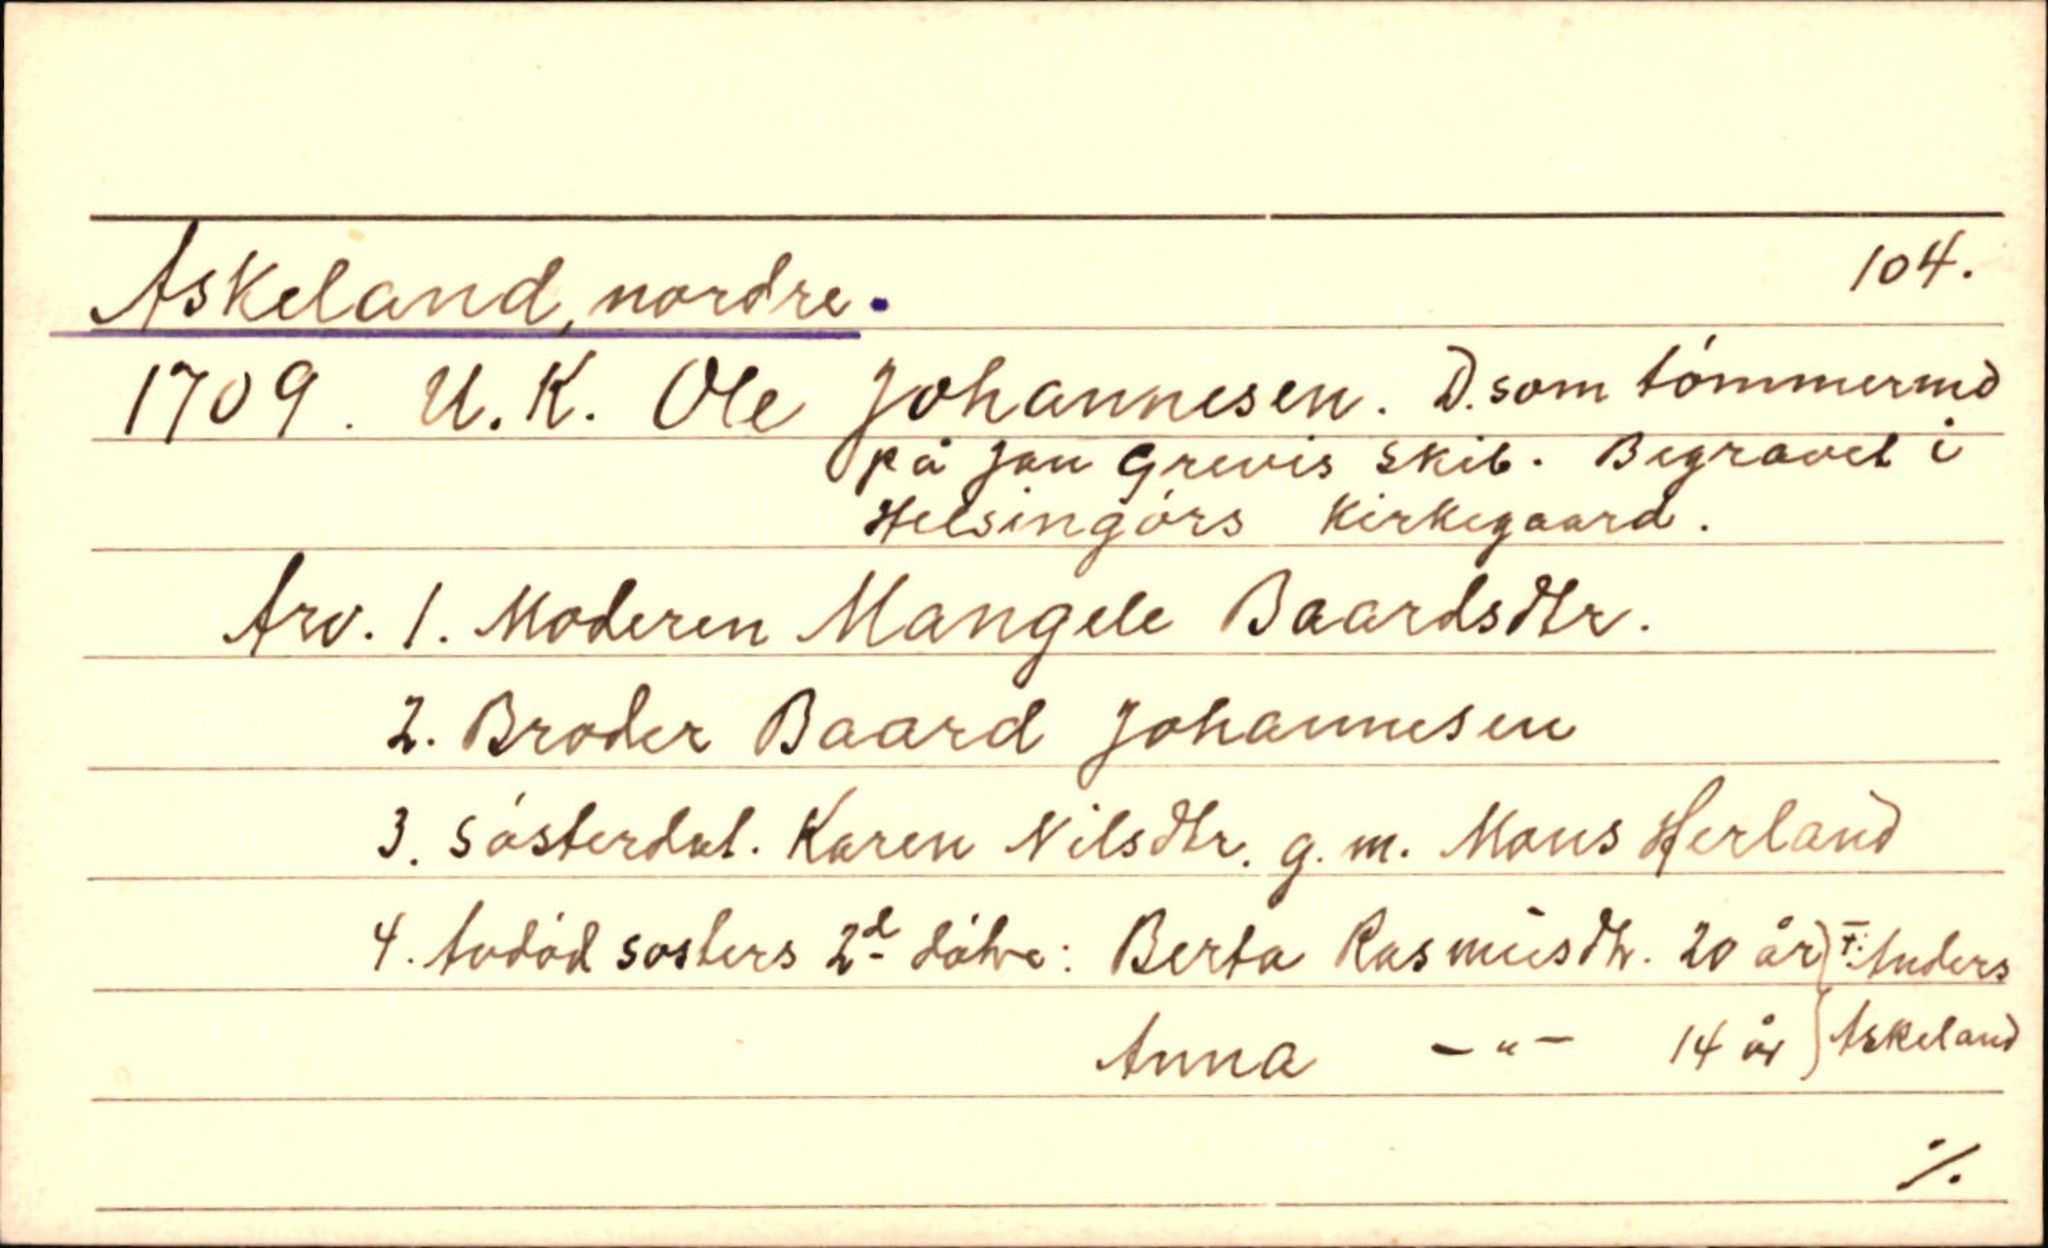 104.
Askeland, nordre.
1709. U.K. Ole Johannesen. D. som tómmermd
på Jan Grevis Skib. Begravet i
Helsingórs Kirkegaard.
Arv. 1. Moderen Mangele Baardsdtr.
2. Broder Baard Johannesen
3. Sósterdat. Karen Nilsdtr. g.m. Mons Herland
4. Avdód sósters 2d dótre: Berta Rasmusdtr. 20 år } F: Anders
Anna -"- 14 år } Askeland
./.